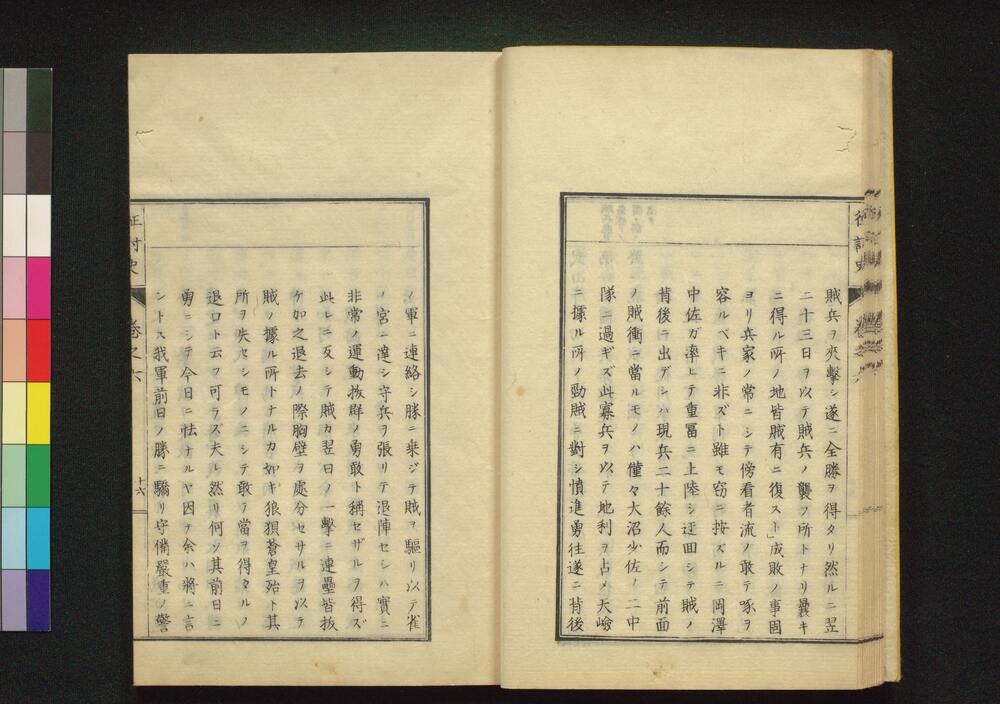 賊兵ヲ夾擊シ遂ニ全勝ヲ得タリ然ルニ翌
二十三日ヲ以テ賊兵ノ襲フ所トナリ曩キ
ニ得ル所ノ地皆賊有ニ復スト」成敗ノ事固
ヨリ兵家ノ常ニシテ傍看者流ノ敢テ啄ヲ
容ルベキニ非ズト雖モ窃ニ按ズルニ岡澤
中佐ガ率ヒテ重冨ニ上陸シ迂回シテ賊ノ
背後ニ出デシハ現兵二十餘人而シテ前面
ノ賊衝ニ當ルモノハ僅々大沼少佐ノ二中
隊ニ過ギズ此寡兵ヲ以テ地利ヲ占メ天嶮
ニ據ル所ノ勁賊ニ對シ憤進勇往遂ニ背後
ノ軍ニ連絡シ勝ニ乗ジテ賊ヲ驅リ以テ雀
ノ宮ニ達シ守兵ヲ張リテ退陣セシハ實ニ
非常ノ運動抜群ノ勇敢ト稱セザルヲ得ズ
此レニ反シテ賊カ翌日ノ一擊ニ連壘皆抜
ケ加之退去ノ際胸壁ヲ處分セサルヲ以テ
賊ノ據ル所トナルカ如キ狼狽蒼皇殆ト其
所ヲ失セシモノニシテ敢テ當ヲ得タルノ
退口ト云フ可ラズ夫レ然リ何ソ其前日ニ
勇ニシテ今日ニ怯ナルヤ因テ余ハ將ニ言
ントス我軍前日ノ勝ニ驕リ守備嚴重ノ警
征討史
卷之六
十六